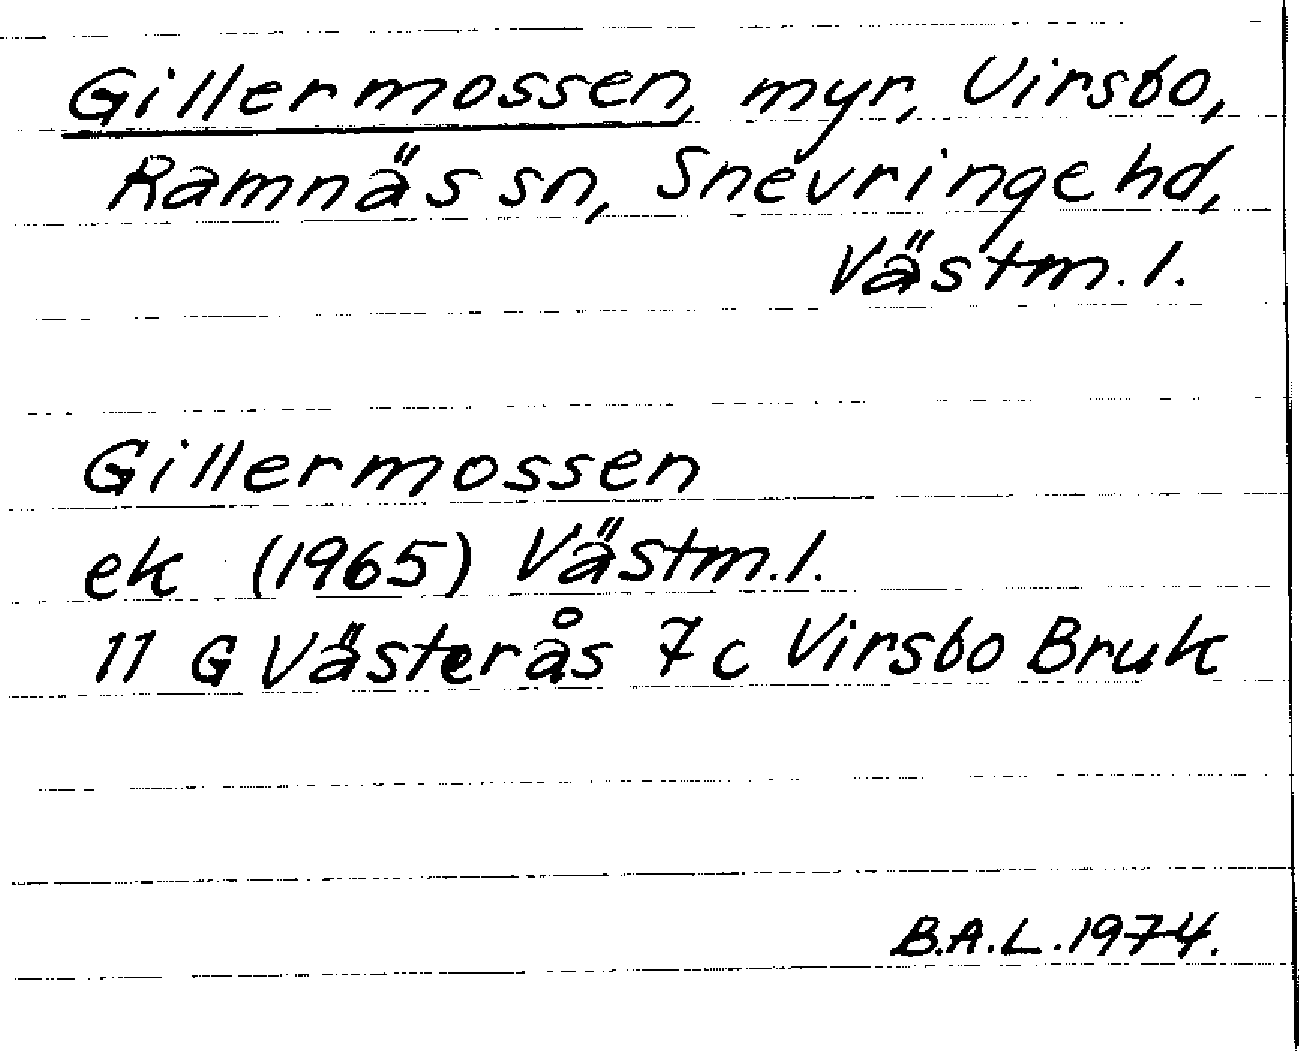 Gillermossen, myr, Virsbo,
Ramnäs sn, Snevringe hd,
Västm. l.
Gillermossen
ek (1965) Västm. l.
11 G Västerås 7c Virsbo Bruk
B.A.L. 1974.